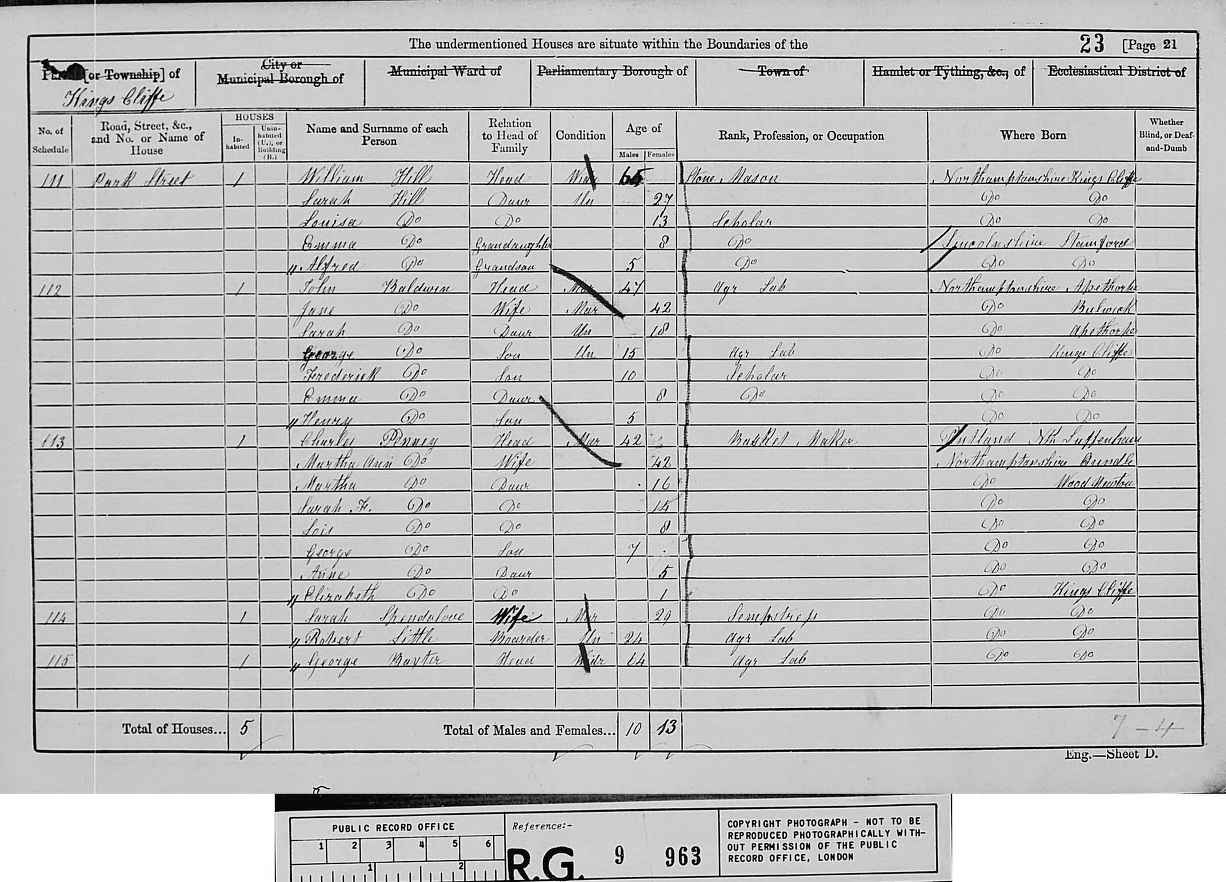 The undermentioned Houses are situate within the Boundaries of the 23 [Page 21
[or Township] of City or Municipal Borough of Municipal Ward of Parliamentary Borough of Town of Hamlet or Tything, &c., of Ecclesiastical District of
Kings Cliffe
No. of Schedule Road, Street, &c., and No. or Name of House HOUSES Inhabited Uninhabited (U.), or Building (B.) Name and Surname of each Person Relation to Head of Family Condition Age of Males Females Rank, Profession, or Occupation Where Born Whether Blind, or Deaf-and-Dumb
111 Park Street 1 William Hill Head 65 Stone Mason Northamptonshire Kings Cliffe
Sarah Hill Daur Un 27 Do Do
Louisa Do Do 13 Scholar Do Do
Emma Do Grandaughter 8 Do Lincolnshire Stamford
Alfred Do Grandson 5 Do Do Do
112 1 John Baldwin Head Mar 47 Agr Lab Northamptonshire Apethorpe
Jane Do Wife Mar 42 Do Bulwick
Sarah Do Daur Un 18 Do Apethorpe
George Do Son Un 15 Agr Lab Do Kings Cliffe
Frederick Do Son 10 Scholar Do Do
Emma Do Daur 8 Do Do Do
Henry Do Son 5 Do Do
113 1 Charles Pinney Head Mar 42 Basket Maker Rutland Nth Luffenham
Martha Ann Do Wife 42 Northamptonshire Oundle
Martha Do Daur 16 Do Wood Newton
Sarah F. Do Do 15 Do Do
Lois Do Do 8 Do Do
George Do Son 7 Do Do
Anne Do Daur 5 Do Do
Elizabeth Do Do 1 Do Kings Cliffe
114 1 Sarah Spendalove Wife Mar 29 Sempstress Do Do
Robert Little Boarder Un 24 Agr Lab Do Do
115 1 George Baxter Head Widr 64 Agr Lab Do Do
Total of Houses... 5 Total of Males and Females... 10 13 7 - 4
Eng.—Sheet D.
PUBLIC RECORD OFFICE
1 2 3 4 5 6
1 2
Reference:-
R.G. 9 963
COPYRIGHT PHOTOGRAPH - NOT TO BE
REPRODUCED PHOTOGRAPHICALLY WITH-
OUT PERMISSION OF THE PUBLIC
RECORD OFFICE, LONDON